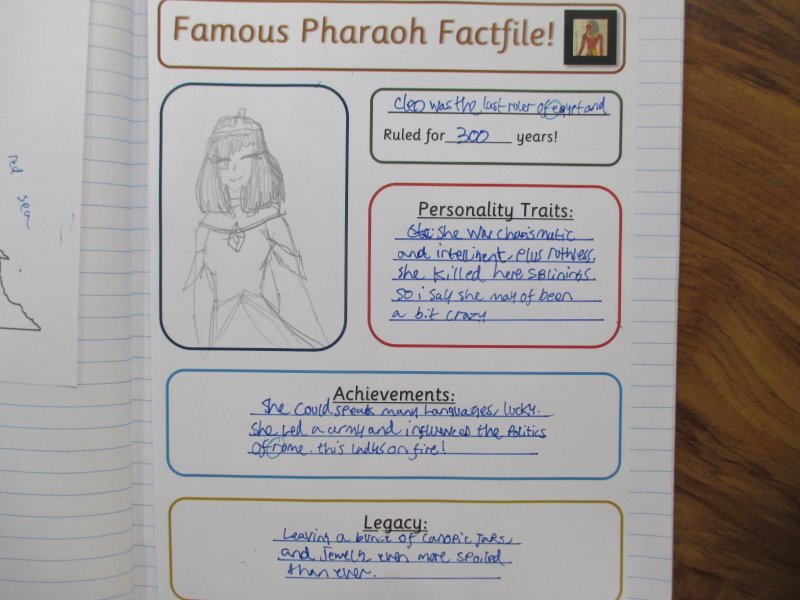 Famous Pharaoh Factfile!
Cleo was the last ruler of egypt and
Ruled for 300 years!
Personality Traits:
she was charismatic
and intelligent, plus ruthless,
she killed here sblinings
so i say she may of been
a bit crazy
Achievements:
She could speak many languages, lucky.
she led a army and influenced the politics
of rome. this ladies on fire!
Legacy:
Leaving a bunch of canopic jars,
and jewels even more spoiled
than ever.
red sea